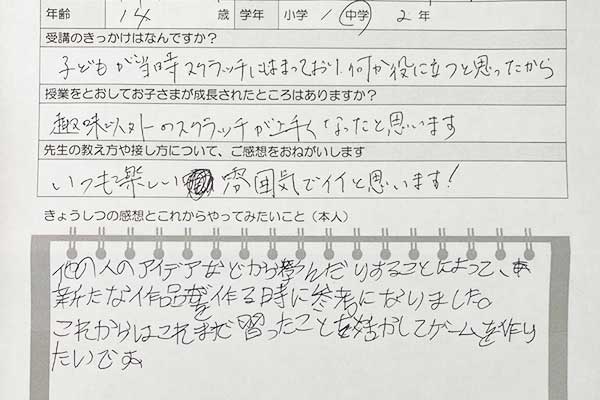 年齢 14 歳 学年 小学 / 中学 2 年
受講のきっかけはなんですか?
子どもが当時スクラッチにはまっており、何か役に立つと思ったから
授業をとおしてお子さまが成長されたところはありますか?
趣味以外のスクラッチが上手くなったと思います
先生の教え方や接し方について、ご感想をおねがいします
いつも楽しい雰囲気でイイと思います!
きょうしつの感想とこれからやってみたいこと(本人)
他の人のアイデアなどから学んだりすることによって、
新たな作品を作る時に参考になりました。
これからはこれまで習ったことを活かしてゲームを作り
たいです。